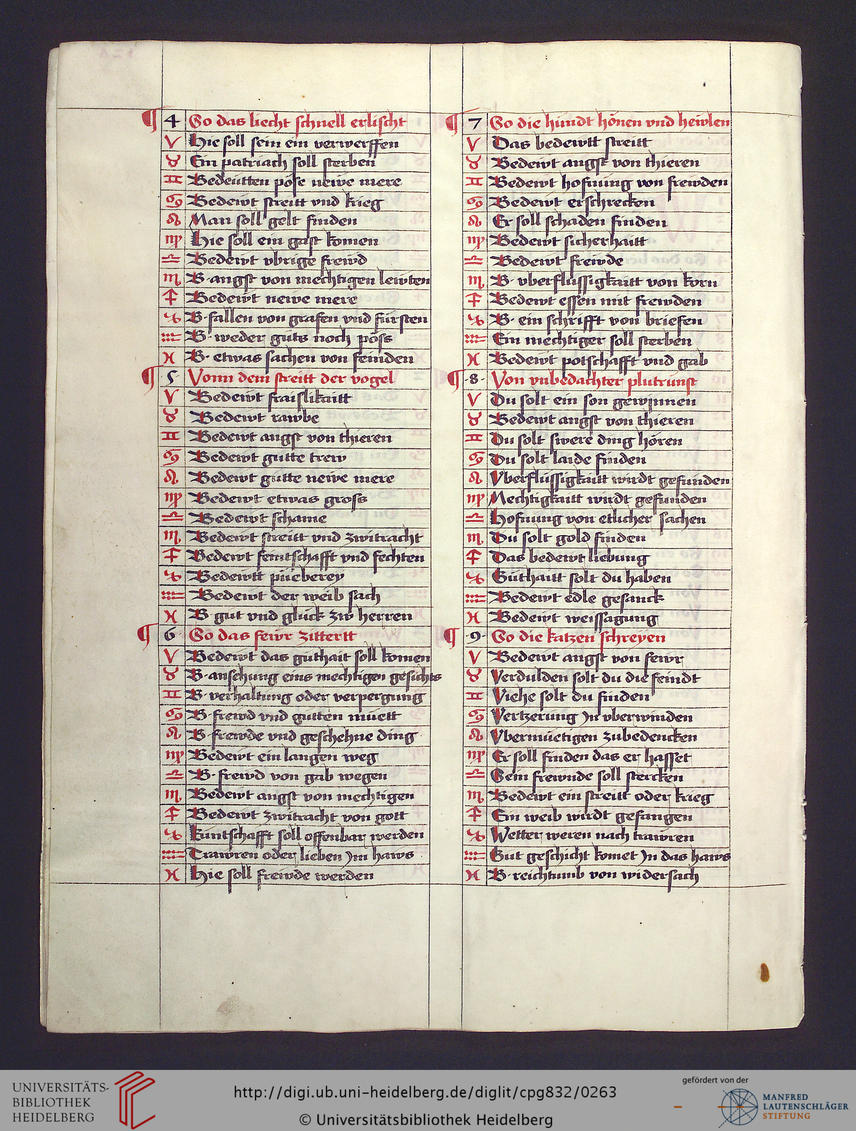 4 So das liecht schnell erlischt
♈ Hie soll sein ein verwerffen
♉ Ein patriach soll sterben
♊ Bedeutten pöse newe mere
♋ Bedewt streitt vnd krieg
♌ Man soll gelt finden
♍ Hie soll ein gast komen
♎ Bedewt vbrige frewd
♏ B· angst von mechtigen lewten
♐ Bedewt newe mere
♑ B· fallen von grafen vnd fürsten
♒ B· weder guts noch pöss
♓ B· etwas sachen von feinden
5 Vonn dem streitt der vogel
♈ Bedewt fraislikaitt
♉ Bedewt rawbe
♊ Bedewt angst von thieren
♋ Bedewt gutte trew
♌ Bedewt gutte newe mere
♍ Bedewt etwas gross
♎ Bedewt schame
♏ Bedewt streitt vnd zwitracht
♐ Bedewt feintschafft vnd fechten
♑ Bedewtt püeberey
♒ Bedewt der weib sach
♓ B gut vnd glück zw herren
6 So das fewr zittertt
♈ Bedewt das guthait soll komen
♉ B· anschung eins mechtigen gesichts
♊ B· verhaltung oder verpergung
♋ B· frewd vnd gutten muett
♌ B· frewde vnd geschehne ding
♍ Bedewt ein langen weg
♎ B· frewd von gab wegen
♏ Bedewt angst von mechtigen
♐ Bedewt zwitracht von gott
♑ Kuntschafft soll offenbar werden
♒ Trawren oder lieben Jm haws
♓ Hie soll frewde werden
7 So die hundt hönen vnd hewlen
♈ Das bedewtt streitt
♉ Bedewt angst von thieren
♊ Bedewt hofnung von frewden
♋ Bedewt erschrecken
♌ Er soll schaden finden
♍ Bedewt sicherhaitt
♎ Bedewt frewde
♏ B· vberflüssigkaitt von korn
♐ Bedewt essen mit frewden
♑ B· ein schrifft von briefen
♒ Ein mechtiger soll sterben
♓ Bedewt potschafft vnd gab
·8· Von vnbedachter plutrunst
♈ Du solt ein son gewinnen
♉ Bedewt angst von thieren
♊ Du solt swere ding hören
♋ Du solt laide finden
♌ Vberflüssigkaitt wirdt gefunden
♍ Mechtigkaitt wirdt gefunden
♎ Hofnung von etlicher sachen
♏ Du solt gold finden
♐ Das bedewt liebung
♑ Güthaitt solt du haben
♒ Bedewt edle gesanck
♓ Bedewt weissagung
·9· So die katzen schreyen
♈ Bedewt angst von fewr
♉ Verdulden solt du die feindt
♊ Viehe solt du finden
♋ Vertzerung Jn vberwinden
♌ Vbermüetigen zubedencken
♍ Er soll finden das er hasset
♎ Sein frewnde soll stercken
♏ Bedewt ein streitt oder krieg
♐ Ein weib wirdt gefangen
♑ Wetter weren nach trawren
♒ Gut geschicht komet Jn das haws
♓ B· reichtumb von widersach
UNIVERSITÄTS-
BIBLIOTHEK
HEIDELBERG
http://digi.ub.uni-heidelberg.de/diglit/cpg832/0263
© Universitätsbibliothek Heidelberg
gefördert von der
MANFRED
LAUTENSCHLÄGER
STIFTUNG